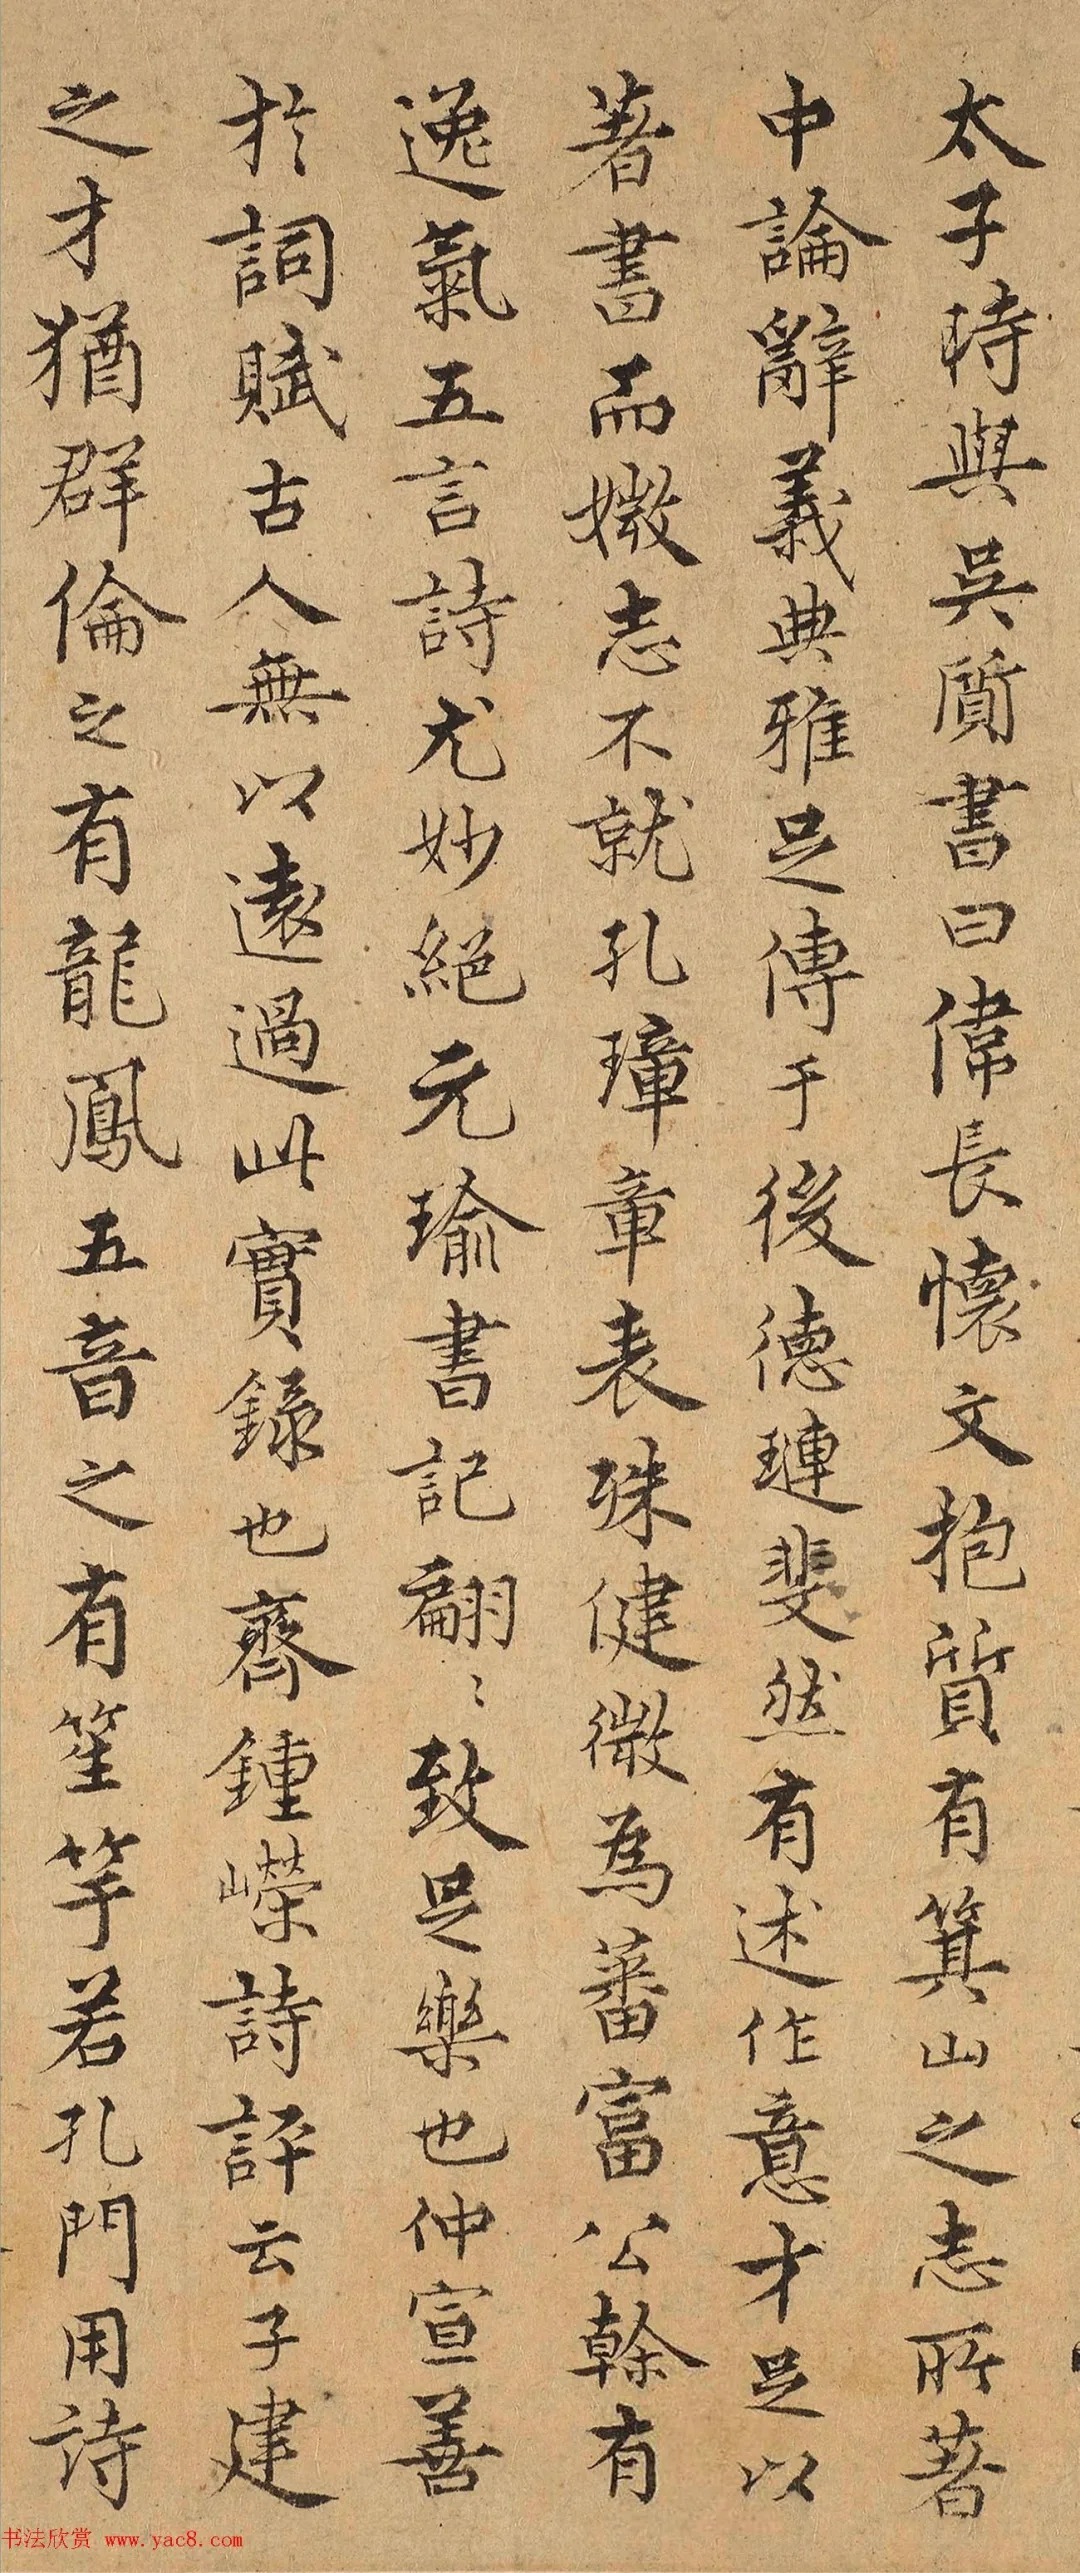 太子時與吳質書曰偉長懷文抱質有箕山之志所著
中論辭義典雅足傳于後德璉斐然有述作意才足以
著書而媺志不就孔璋章表殊健微為蕃富公幹有
逸氣五言詩尤妙絕元瑜書記翩〻致足樂也仲宣善
於詞賦古人無以遠過此實錄也齊鍾嶸詩評云子建
之才猶群倫之有龍鳳五音之有笙竽若孔門用詩
书法欣赏 www.yac8.com